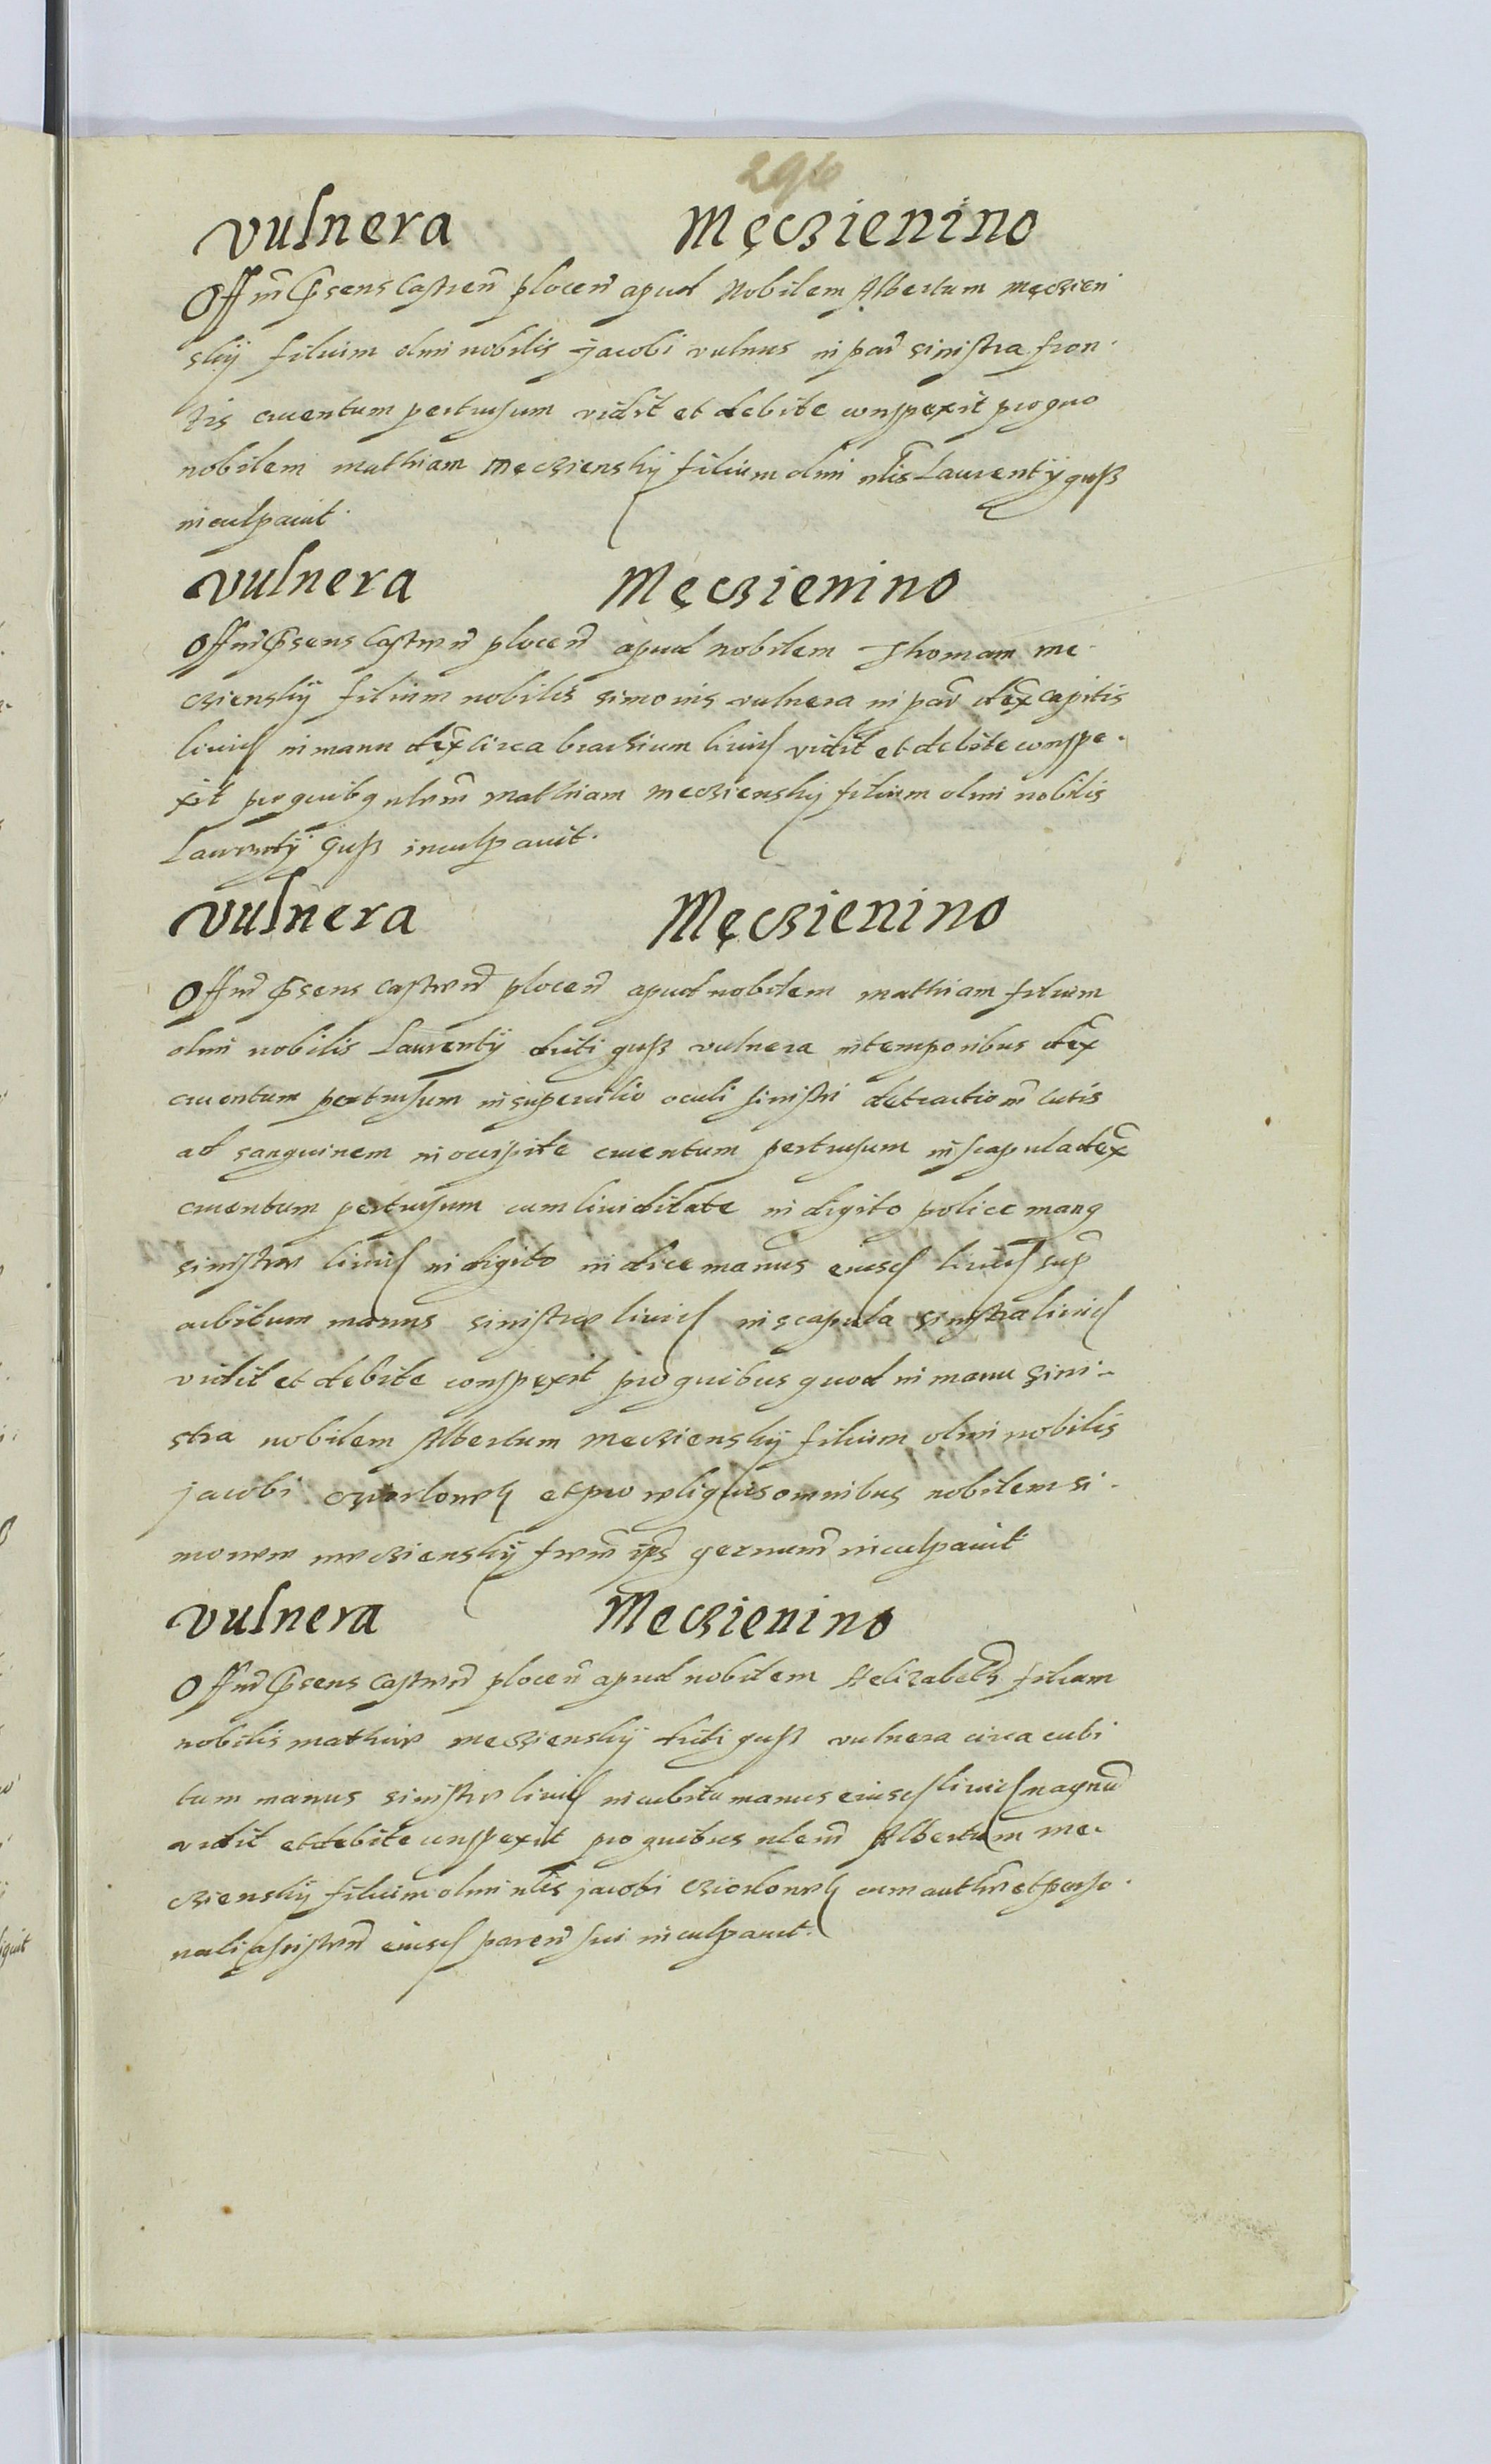 296
Vulnera Męczienino
Offm Prsens Castren plocen apud Nobilem Albertum męczien
skij filium olim nobilis jacobi vulnus in par sinistra fron
tis cruentum pertusum vidit et debite conspexit pro quo
nobilem mathiam męczienskij filium olim nlis Laurentÿ guss
inculpauit.
Vulnera Męczienino
Offm Prsens Castren plocen apud nobilem Thomam me
czienskij filium nobilis simonis vulnera in par dex capitis
liuid in manu dex circa brachium liuid vidit et debite conspe
xit pro quibq nlem Mathiam meczienskij filium olim nobilis
Laurentÿ Guss inculpauit.
Vulnera Męczienino
Offm Prsens castren plocen apud nobilem mathiam filium
olim nobilis Laurentÿ dicti guss vulnera in temporibus dex
cruentum pertusum in supercilio oculi sinistri detractionem cutis
ad sanguinem in occipite cruentum pertusum in scapula dex
cruentum pertusum cum liuiditate in digito police manq
sinistre liuid in digito indice manus eiusd liuid sup
cubitum manus sinistre liuid in scapula sinistra liuid
vidit et debite conspexit pro quibus quod in manu sini
stra nobilem Albertum meczienskij filium olim nobilis
jacobi et pro reliquis omnibus nobilem si
monem meczienskij frem ips germanum inculpauit
Vulnera Meczienino
Offm Prsens castren plocen apud nobilem Helizabeth filiam
nobilis mathie meczienskij dicti guss vulnera circa cubi
tum manus sinistre liuid in cubito manus eiusd liuid magnum
vidit et debite conspexit pro quibus nlem Albertum me
czienskij filium olim nlis jacobi cum authre et perso
nali assisten eiusd paren sui inculpauit.